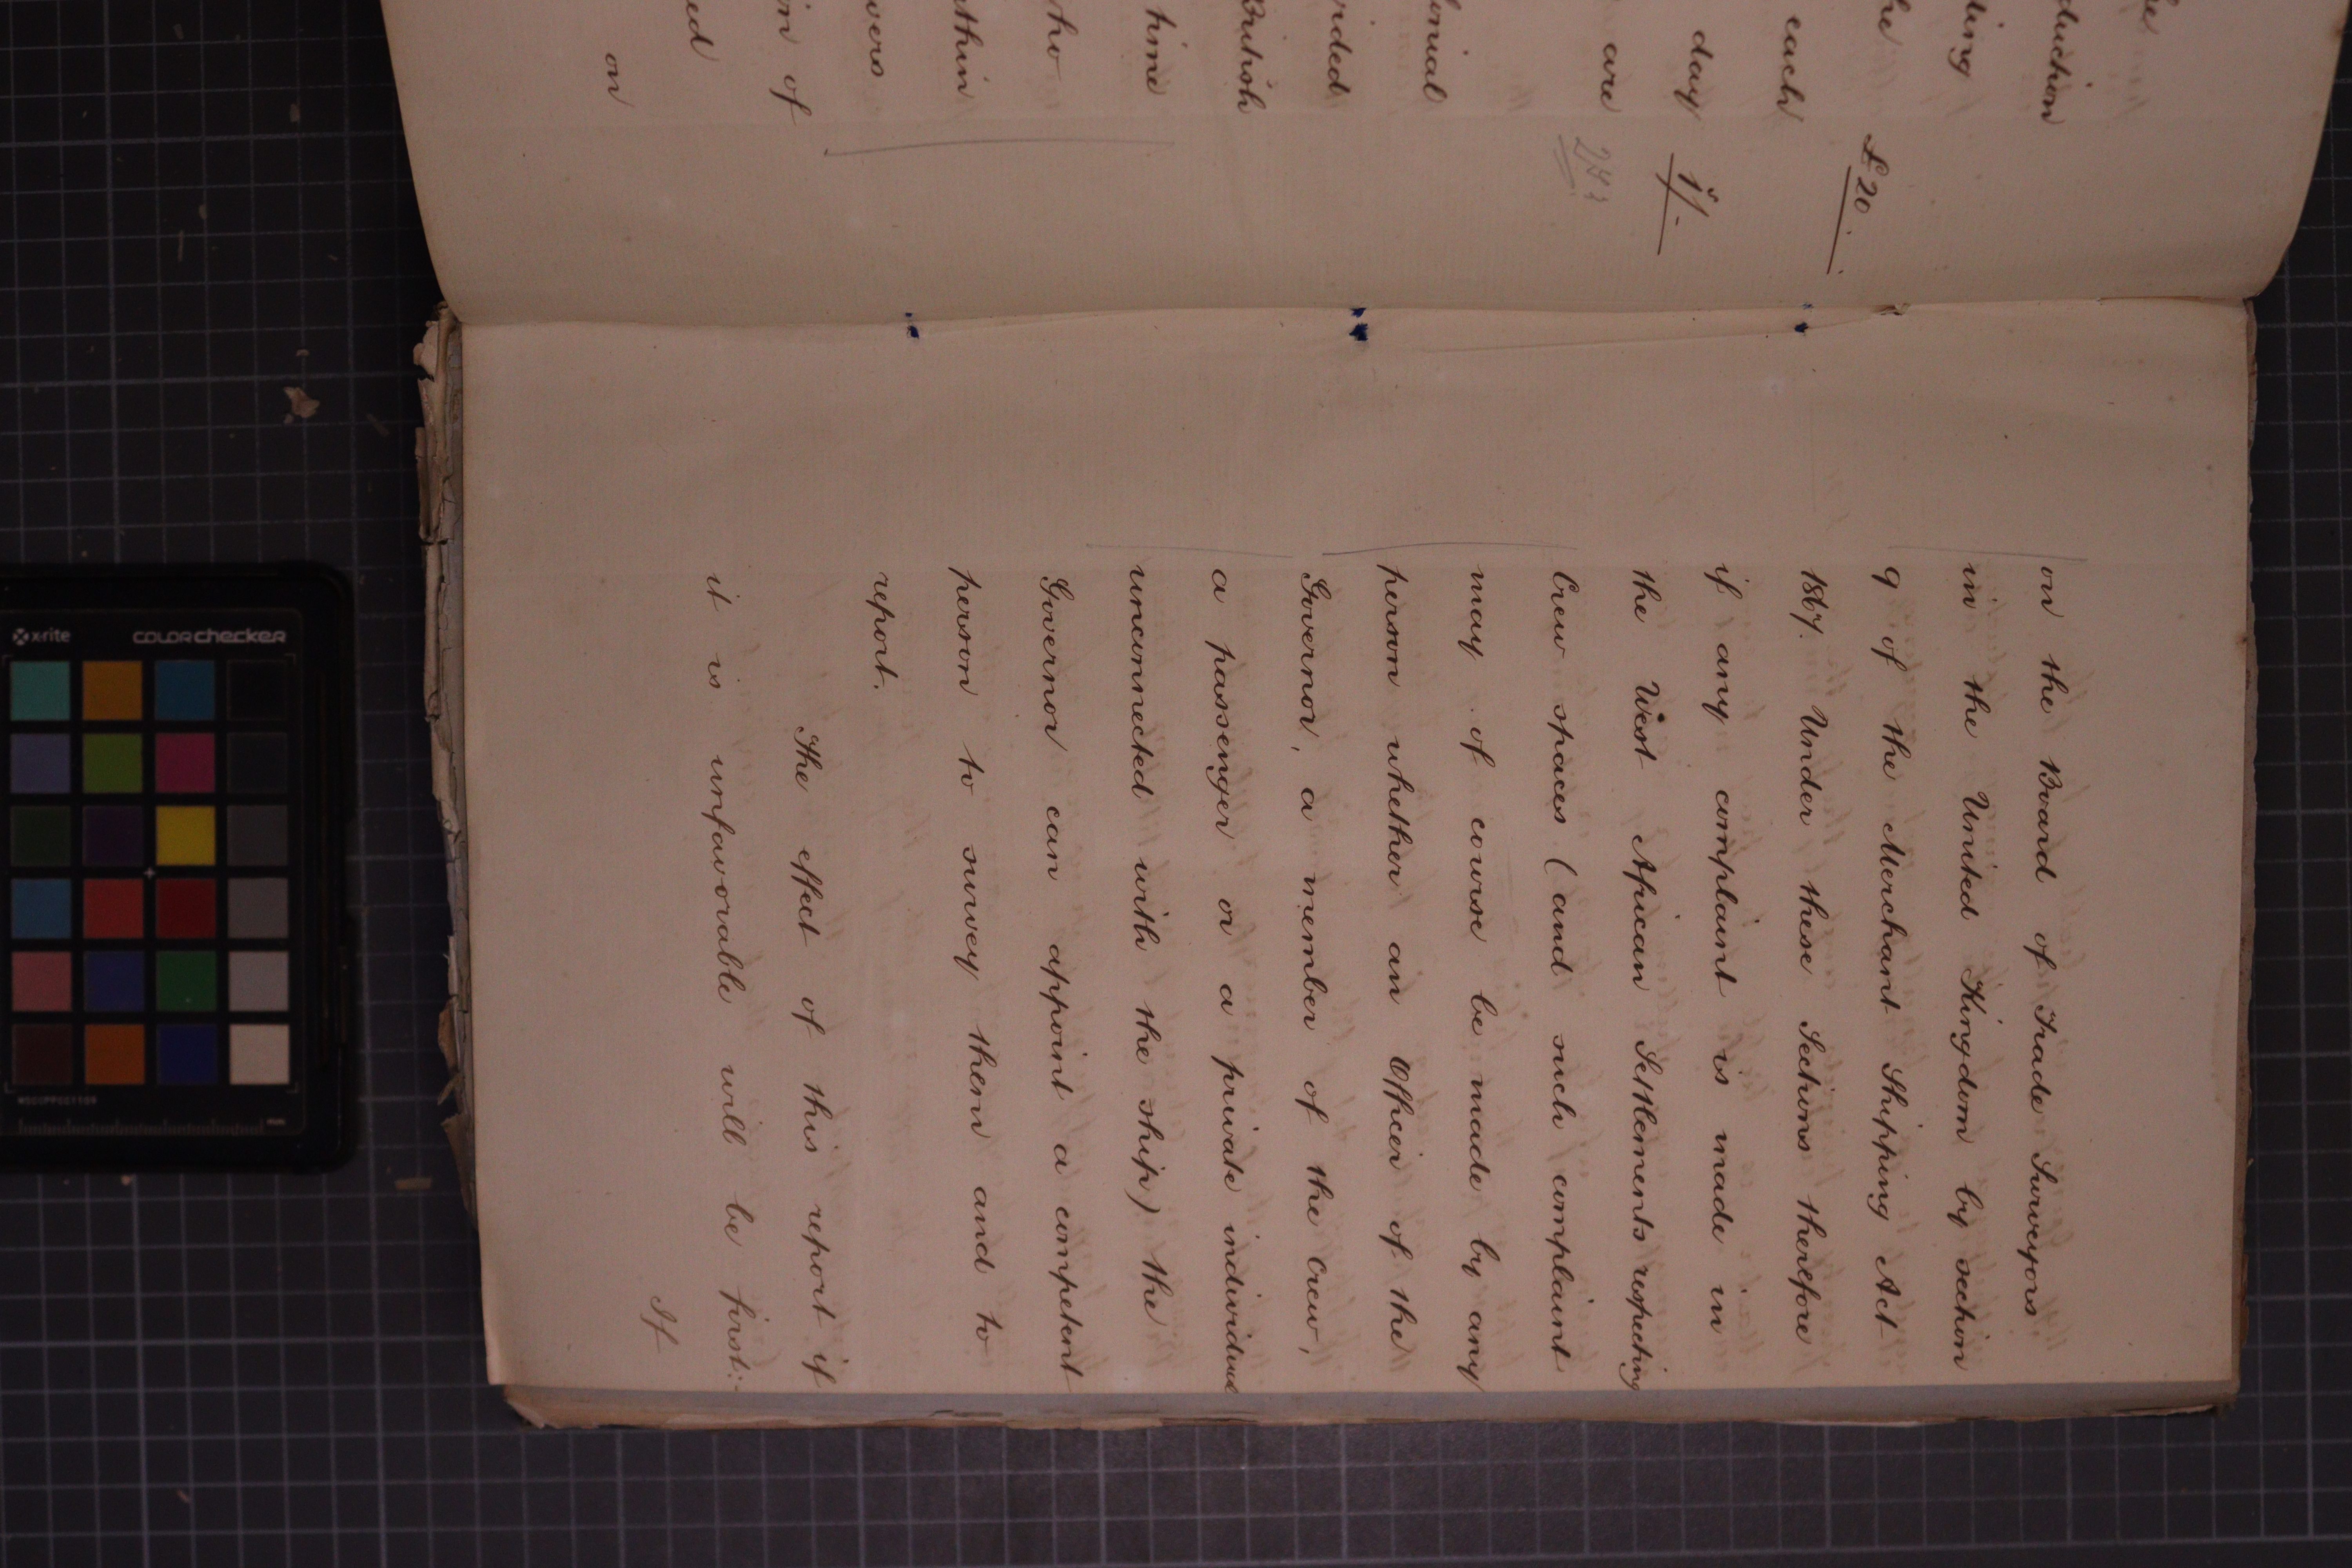 the
duction
ding
he
£20.
each
day 1/-
are
onial
vided
British
time
ho
ithin
vers
on of
ed
on
on the Board of Trade Surveyors
in the United Kingdom by section
9 of the Merchant Shipping Act
1867. Under these Sections therefore
if any complaint is made in
the West African Settlements respecting
Crew spaces (and such complaint
may of course be made by any
person whether an Officer of the
Governor, a member of the Crew,
a passenger or a private individual
unconnected with the ship) the
Governor can appoint a competent
person to survey them and to
report.
The effect of this report if
it is unfavorable will be first:-
If
x-rite colorchecker